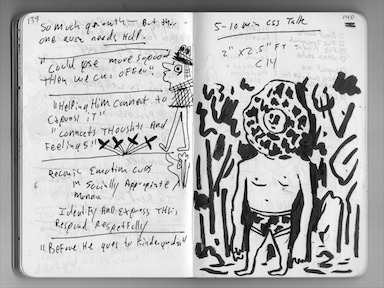 139
So much growth - But this
one area needs Help
"Could use more support
Than we can offer"
"Helping Him Connect to
Express it"
"connects Thoughts And
Feelings"
Recognize Emotion cues
in Socially Appropriate
Manner
Identify AND Express THIS,
Respond Respectfully
"Before He goes to Kindergarten"
140
5-10 min Talk
2" x 2.5" FT -
C14